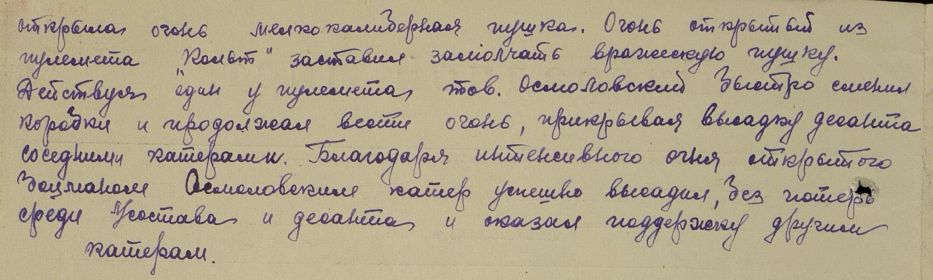 открыла огонь мелкокалиберная пушка. Огонь открытый из
пулемета "Кольт" заставил замолчать вражескую пушку.
Действуя един у пулемета тов. Осмоловский быстро сменил
коробки и продолжал вести огонь, прикрывая высадку десанта
соседними катерами. Благодаря интенсивного огня открытого
Боцманом Осмоловским катер успешно высадил, без потерь
среди состава и десанта и оказал поддержку другим
катерам.